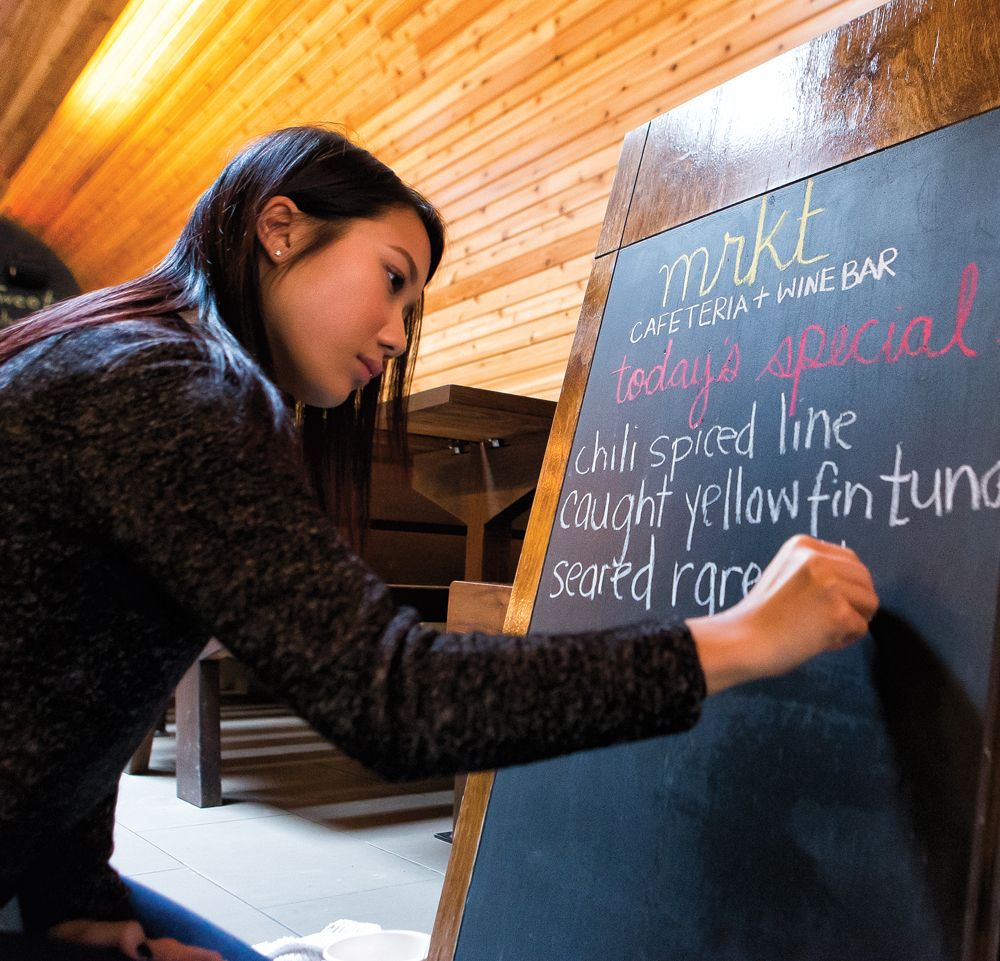 mrkt
CAFETERIA + WINE BAR
today's special
chili spiced line
caught yellowfin tuna
seared rare